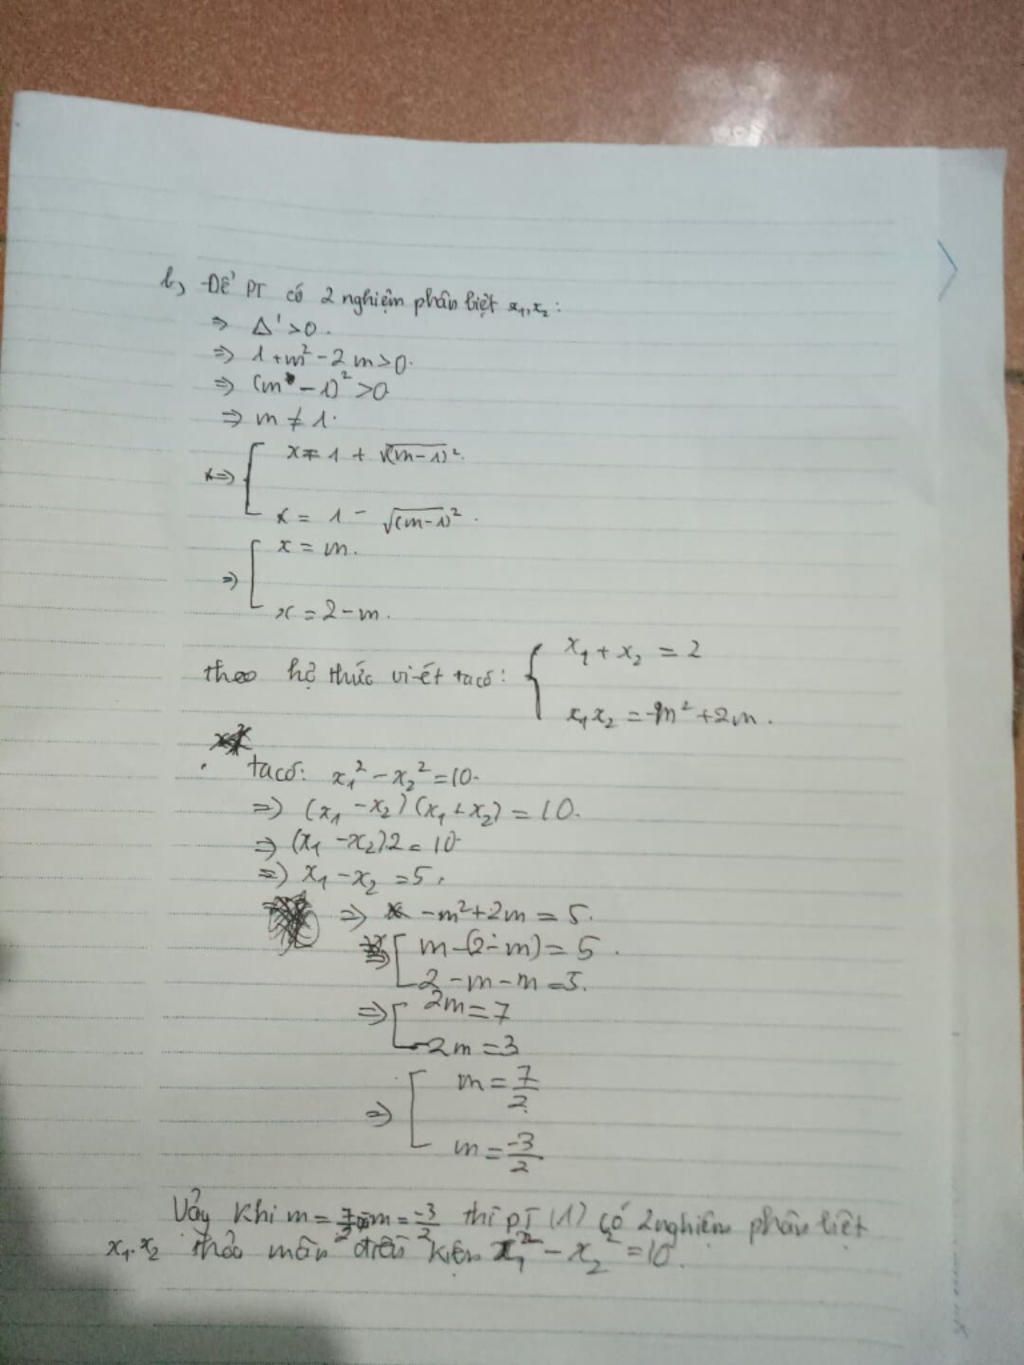 b, Để PT có 2 nghiệm phân biệt x₁,x₂:
⇒ Δ' > 0.
⇒ 1 + m² - 2m > 0.
⇒ (m - 1)² > 0
⇒ m ≠ 1.
⇒ [ x = 1 + √(m-1)².
x = 1 - √(m-1)².
⇒ [ x = m.
x = 2 - m.
theo hệ thức vi-ét ta có: { x₁ + x₂ = 2
x₁x₂ = -m² + 2m.
ta có: x₁² - x₂² = 10.
⇒ (x₁ - x₂)(x₁ + x₂) = 10.
⇒ (x₁ - x₂)2 = 10
⇒ x₁ - x₂ = 5.
⇒ -m² + 2m = 5.
⇒ [ m - (2 - m) = 5.
2 - m - m = 5.
⇒ [ 2m = 7
-2m = 3
⇒ [ m = 7/2
m = -3/2
Vậy khi m = 7/2 m = -3/2 thì PT (1) có 2 nghiệm phân biệt
x₁, x₂ thỏa mãn điều kiện x₁² - x₂² = 10.